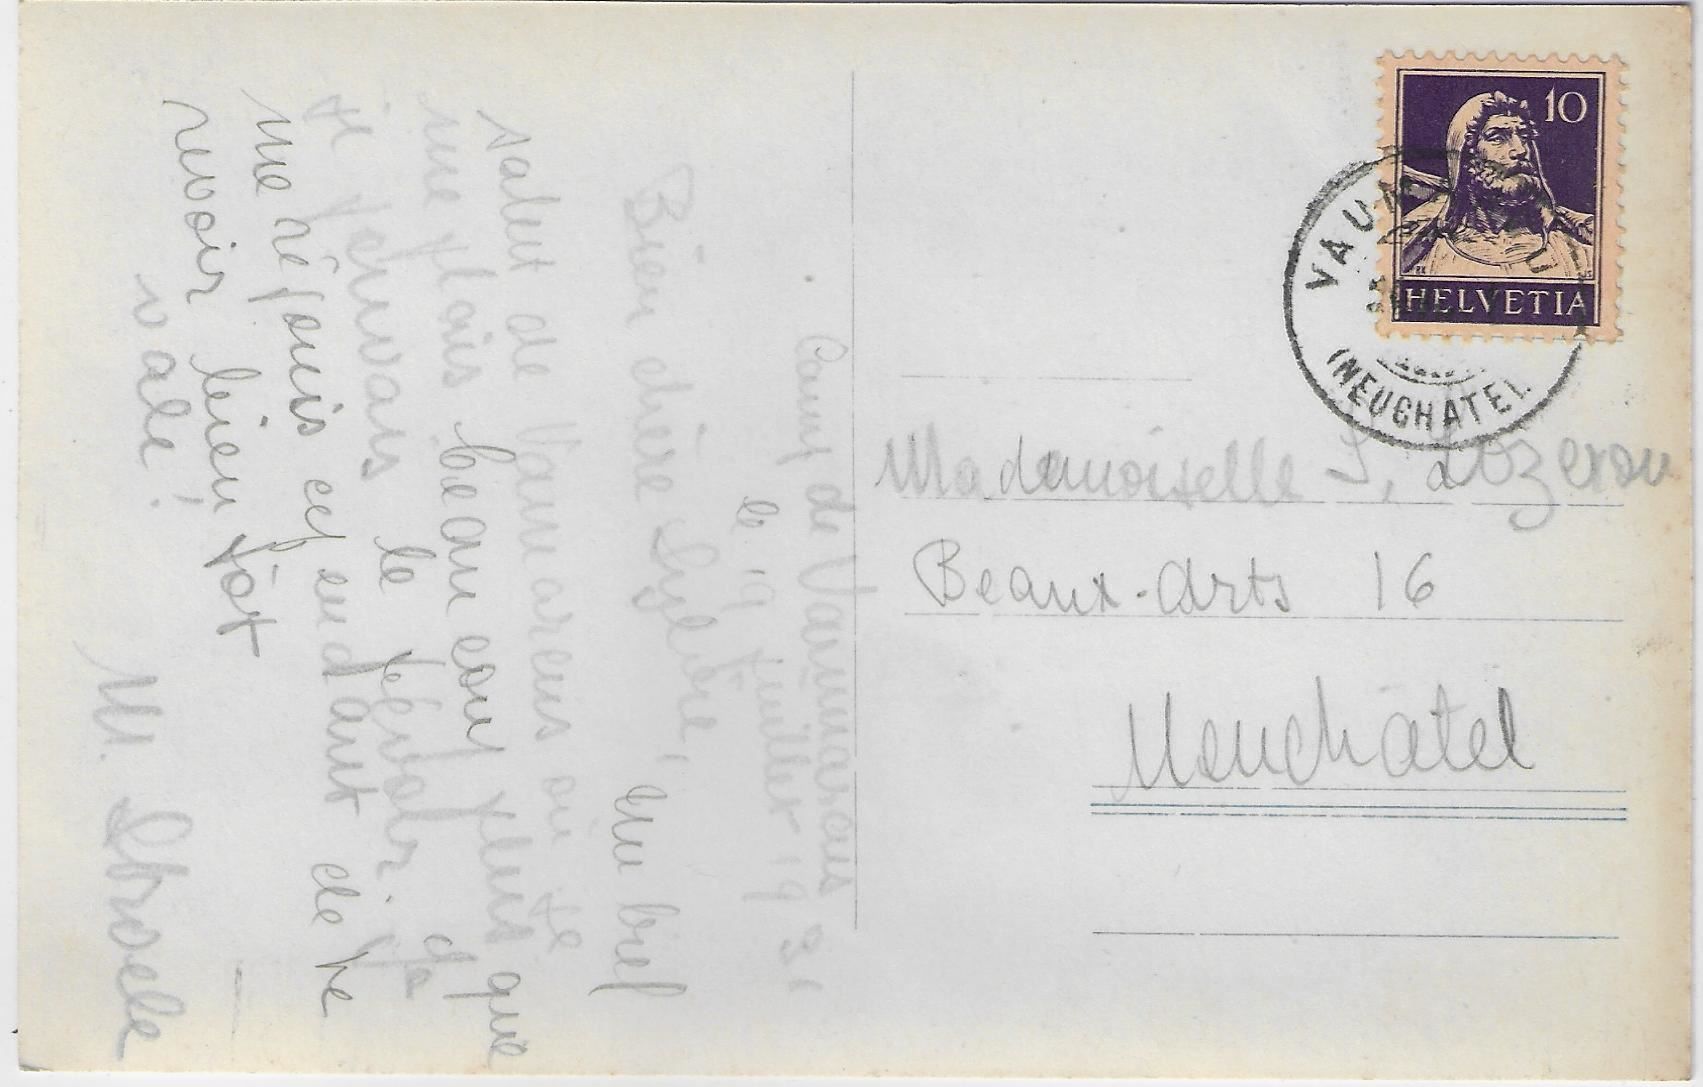 Camp de Vaumarcus
le 19 juillet 193
Bien chère Sylvie, un bref
salut de Vaumarcus où je
me plais beaucoup plus que
je pensais le
me réjouis cependant de te
revoir bien tôt
vale!
10
HELVETIA
(NEUCHATEL
Mademoiselle S. Lozeron
Beaux-Arts 16
Neuchâtel